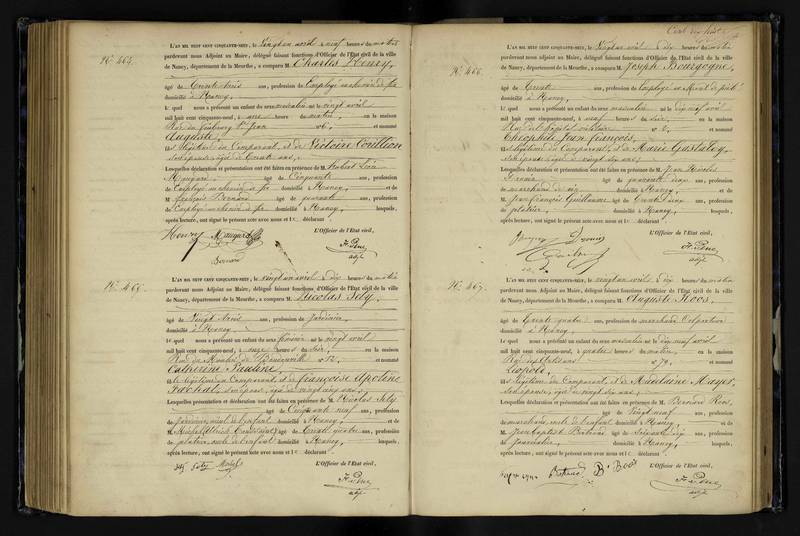 N° 464.
L'AN MIL HUIT CENT CINQUANTE-NEUF, le Vingt un avril à neuf heures du matin
pardevant nous Adjoint au Maire, délégué faisant fonctions d'Officier de l'Etat civil de la ville
de Nancy, département de la Meurthe, a comparu M. Charles Henry,
âgé de Trente trois ans, profession de Employé au chemin de fer
domicilié à Nancy,
Lequel nous a présenté un enfant du sexe masculin né le vingt avril
mil huit cent cinquante-neuf, à une heure du matin, en la maison
Rue du faubourg St Jean n° 6, et nommé
Auguste
fils légitime du Comparant, et de Victoire
son épouse, âgée de Trente ans,
Lesquelles déclaration et présentation ont été faites en présence de M. Hubert
Maugard âgé de Cinquante ans, profession
de Employé au chemin de fer domicilié à Nancy, et de
M. François Bernard âgé de quarante ans, profession
de Employé au chemin de fer domicilié à Nancy, lesquels,
après lecture, ont signé le présent acte avec nous et le déclarant
L'Officier de l'Etat civil,
Henry Maugard
Bernard
adjt
N° 465.
L'AN MIL HUIT CENT CINQUANTE-NEUF, le vingt un avril à dix heures du matin
pardevant nous Adjoint au Maire, délégué faisant fonctions d'Officier de l'Etat civil de la ville
de Nancy, département de la Meurthe, a comparu M. Nicolas Sély,
âgé de Vingt trois ans, profession de Jardinier,
domicilié à Nancy,
Lequel nous a présenté un enfant du sexe féminin né le vingt avril
mil huit cent cinquante-neuf, à onze heures du soir, en la maison
Rue du n° 12, et nommé
Catherine Pauline,
fille légitime du Comparant, et de Françoise Apoline
son épouse, âgée de vingt cinq ans;
Lesquelles déclaration et présentation ont été faites en présence de M. Nicolas Sély
âgé de Cinquante neuf ans, profession
de Jardinier, aïeul de l'enfant domicilié à Nancy, et de
M. âgé de Trente quatre ans, profession
de platrier, oncle de l'enfant domicilié à Nancy, lesquels,
après lecture, ont signé le présent acte avec nous et le déclarant
L'Officier de l'Etat civil,
Sély
adjt
N° 466.
L'AN MIL HUIT CENT CINQUANTE-NEUF, le Vingt un avril à dix heures du matin
pardevant nous Adjoint au Maire, délégué faisant fonctions d'Officier de l'Etat civil de la ville
de Nancy, département de la Meurthe, a comparu M. Joseph Bourgogne,
âgé de Trente ans, profession de Employé au Mont de piété
domicilié à Nancy,
Lequel nous a présenté un enfant du sexe masculin né le dix neuf avril
mil huit cent cinquante-neuf, à neuf heures du soir, en la maison
Rue de l'hôpital militaire n° 6, et nommé
Théophile Jean François,
fils légitime du Comparant, et de Marie
son épouse, âgée de vingt six ans;
Lesquelles déclaration et présentation ont été faites en présence de M. Jean Nicolas
âgé de quarante deux ans, profession
de marchand de vin domicilié à Nancy, et de
M. Jean François Guillaume âgé de Trente cinq ans, profession
de platrier, domicilié à Nancy, lesquels,
après lecture, ont signé le présent acte avec nous et le déclarant
L'Officier de l'Etat civil,
adjt
N° 467.
L'AN MIL HUIT CENT CINQUANTE-NEUF, le vingt un avril à dix heures du matin
pardevant nous Adjoint au Maire, délégué faisant fonctions d'Officier de l'Etat civil de la ville
de Nancy, département de la Meurthe, a comparu M. Auguste Roos,
âgé de Trente quatre ans, profession de marchand Colporteur
domicilié à Nancy,
Lequel nous a présenté un enfant du sexe masculin né le dix neuf avril
mil huit cent cinquante-neuf, à quatre heures du matin, en la maison
Rue des Artisans n° 79, et nommé
Léopold,
fils légitime du Comparant, et de Madelaine Mayer,
son épouse, âgée de vingt six ans;
Lesquelles déclaration et présentation ont été faites en présence de M. Bernard Roos,
âgé de Vingt neuf ans, profession
de marchand, oncle de l'enfant domicilié à Nancy, et de
M. Jean Baptiste Bertrand âgé de Soixante dix ans, profession
de Journalier, domicilié à Nancy, lesquels,
après lecture, ont signé le présent acte avec nous et le déclarant
L'Officier de l'Etat civil,
Bertrand B. Roos
adjt